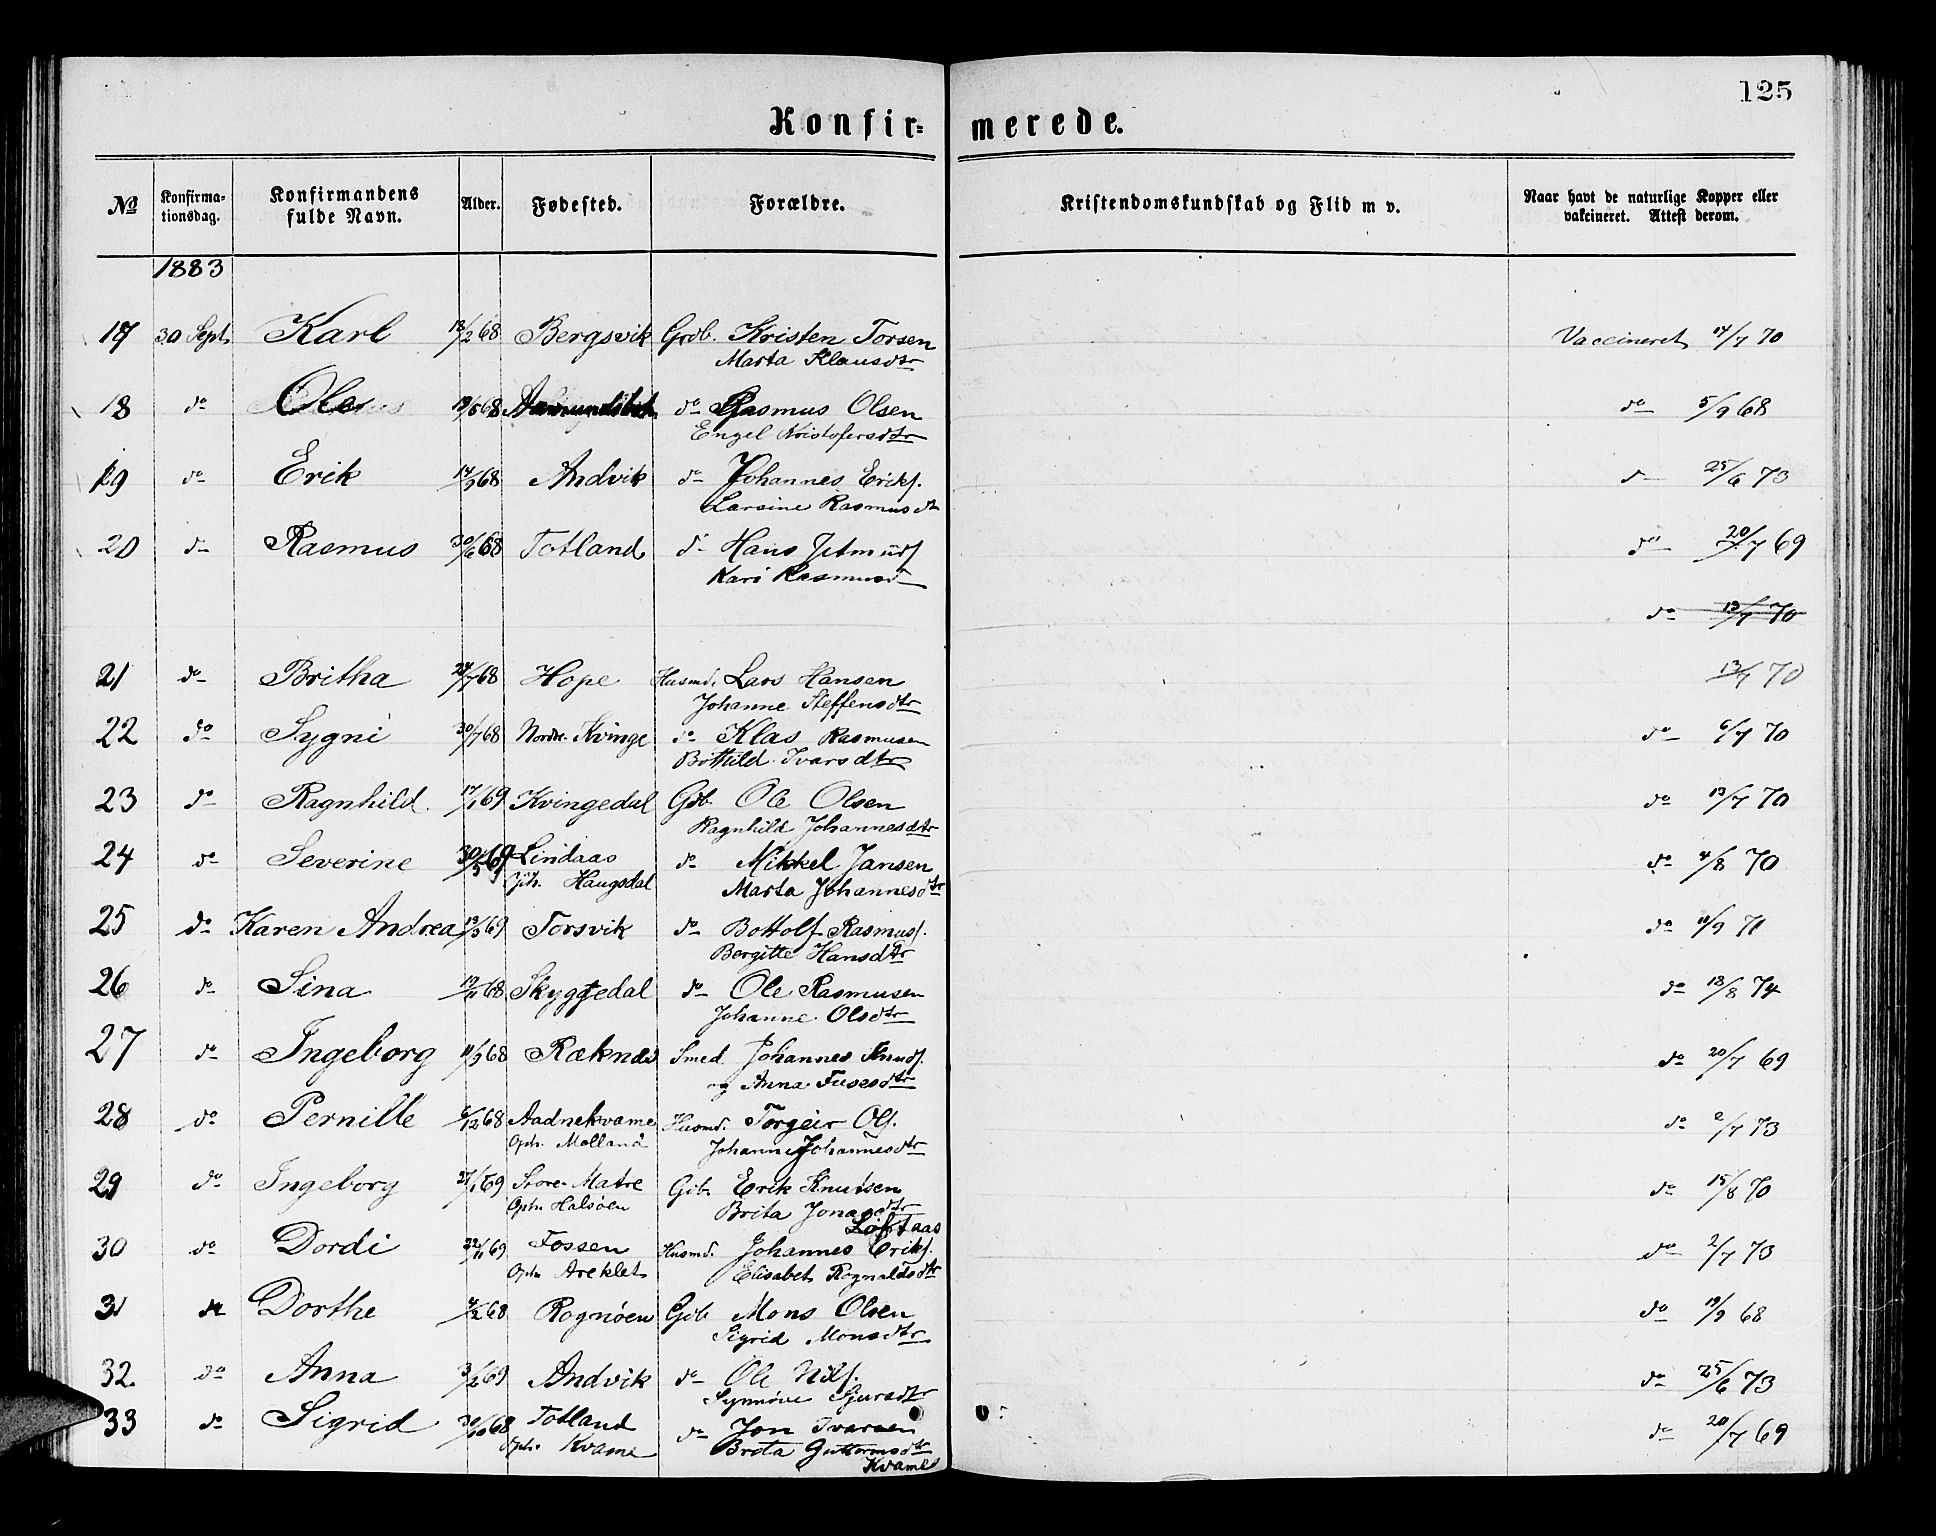 125
Konfir= merede.
No Konfirmationsdag. Konfirmandens fulde Navn. Alder. Fødested. Forældre. Kristendomskundskab og Flid m v. Naar havt de naturlige Kopper eller vakcineret. Attest derom.
1883
17 30 Sept Karl 18/2 68 Bergsvik Grdb. Kristen Torsen Vaccineret 14/7 70
Marta Klausdtr
18 do Ole 19/5 68 do Rasmus Olsen do 5/9 68
Engel Kristofersdtr
19 do Erik 14/9 68 Andvik do Johannes Eriks. d 25/6 73
Larsine Rasmusdt
20 do Rasmus 30/6 68 Totland d Hans do 20/7 69
Kari Rasmusd
do 13/7 70
21 do Britha 24/7 68 Hope Husmd. Lars Hansen 13/7 70
Johanne Steffensdtr
22 do Sygni 30/7 68 Nordre Kvinge do Klas Rasmusen do 6/7 70
Bottild Ivarsdtr
23 do Ragnhild 17/1 69 Kvingedal Gdb. Ole Olsen do 13/7 70
Ragnhild Johannesdtr
24 do Severine 30/5 69 Lindaas do Mikkel Jansen do 4/8 70
Oph. Haugsdal Marta Johannesdtr
25 do Karen Andrea 13/3 69 Torsvik do Bottolf Rasmusf. do 11/9 71
Bergitte Hansdtr
26 do Sina 19/11 68 Skyggedal do Ole Rasmusen do 18/8 74
Johanne Olsdtr
27 do Ingeborg 11/9 68 Ræknes Smed Johannes Knudf. do 20/7 69
og Anna Fusesdtr
28 do Pernille 6/12 68 Aadnekvame Husmd. Torgeir Olf. do 2/7 73
Oph. Molland Johanne Johannesdtr
29 do Ingeborg 27/1 69 Store Matre Gdb. Erik Knutsen do 15/8 70
Oph. Halsøen Brita Jonasdtr
Løftaas
30 do Dordi 22/11 69 Fossen Husmd. Johannes Erikf. do 2/7 73
Oph. Areklet Elisabet Rognaldsdtr
31 do Dorthe 4/2 68 Rognøen Gdb Mons Olsen do 19/9 68
Sigrid Monsdtr
32. do Anna 3/2 69 Andvik do Ole Nilf. do 25/6 73
Synnøve Sjursdtr
33 do Sigrid 30/10 68 Totland do Jon Ivarsen do 20/7 69
Oph. Kvame Brita Guttormsdtr
Kvame